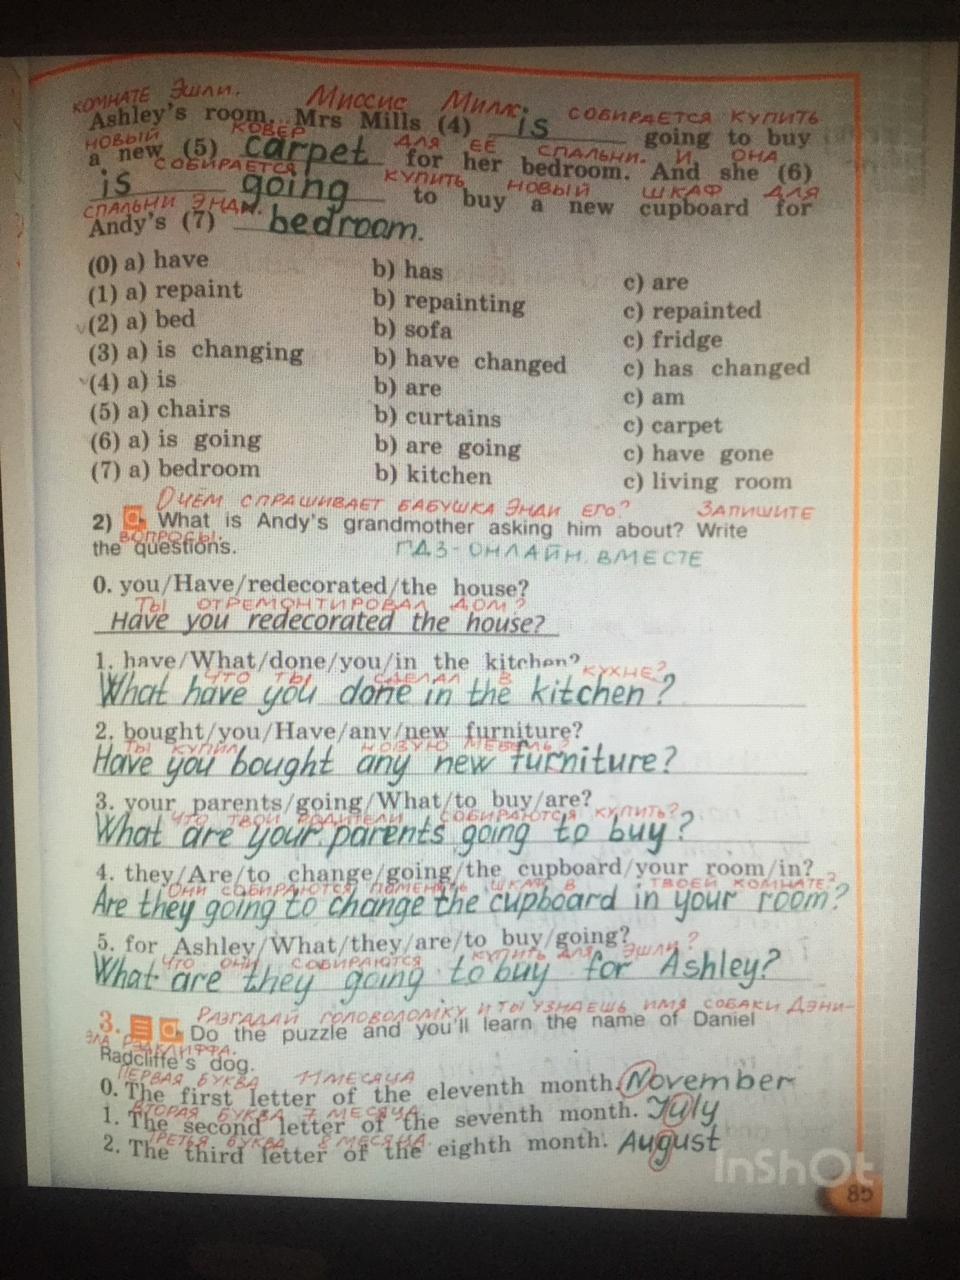 КОМНАТЕ ЭШЛИ. МИССИС МИЛЛС СОБИРАЕТСЯ КУПИТЬ
Ashley's room. Mrs Mills (4) is going to buy
НОВЫЙ КОВЕР ДЛЯ ЕЁ СПАЛЬНИ. И ОНА
a new (5) carpet for her bedroom. And she (6)
СОБИРАЕТСЯ КУПИТЬ НОВЫЙ ШКАФ ДЛЯ
is going to buy a new cupboard for
СПАЛЬНИ ЭНДИ.
Andy's (7) bedroom.
(0) a) have b) has c) are
(1) a) repaint b) repainting c) repainted
(2) a) bed b) sofa c) fridge
(3) a) is changing b) have changed c) has changed
(4) a) is b) are c) am
(5) a) chairs b) curtains c) carpet
(6) a) is going b) are going c) have gone
(7) a) bedroom b) kitchen c) living room
О ЧЕМ СПРАШИВАЕТ БАБУШКА ЭНДИ ЕГО? ЗАПИШИТЕ
2) What is Andy's grandmother asking him about? Write
ВОПРОСЫ.
the questions. ГДЗ-ОНЛАЙН. ВМЕСТЕ
0. you/Have/redecorated/the house?
ТЫ ОТРЕМОНТИРОВАЛ ДОМ?
Have you redecorated the house?
1. have/What/done/you/in the kitchen?
ЧТО ТЫ СДЕЛАЛ В КУХНЕ?
What have you done in the kitchen?
2. bought/you/Have/any/new furniture?
ТЫ КУПИЛ НОВУЮ МЕБЕЛЬ?
Have you bought any new furniture?
3. your parents/going/What/to buy/are?
ЧТО ТВОИ РОДИТЕЛИ СОБИРАЮТСЯ КУПИТЬ?
What are your parents going to buy?
4. they/Are/to change/going/the cupboard/your room/in?
ОНИ СОБИРАЮТСЯ ПОМЕНЯТЬ ШКАФ В ТВОЕЙ КОМНАТЕ?
Are they going to change the cupboard in your room?
5. for Ashley/What/they/are/to buy/going?
ЧТО ОНИ СОБИРАЮТСЯ КУПИТЬ ДЛЯ ЭШЛИ?
What are they going to buy for Ashley?
РАЗГАДАЙ ГОЛОВОЛОМКУ И ТЫ УЗНАЕШЬ ИМЯ СОБАКИ ДЭНИ-
3. Do the puzzle and you'll learn the name of Daniel
ЭЛА РЭДКЛИФФА.
Radcliffe's dog.
ПЕРВАЯ БУКВА 11 МЕСЯЦА
0. The first letter of the eleventh month. November
ВТОРАЯ БУКВА 7 МЕСЯЦА
1. The second letter of the seventh month. July
ТРЕТЬЯ БУКВА 8 МЕСЯЦА.
2. The third letter of the eighth month. August
InShOt
85